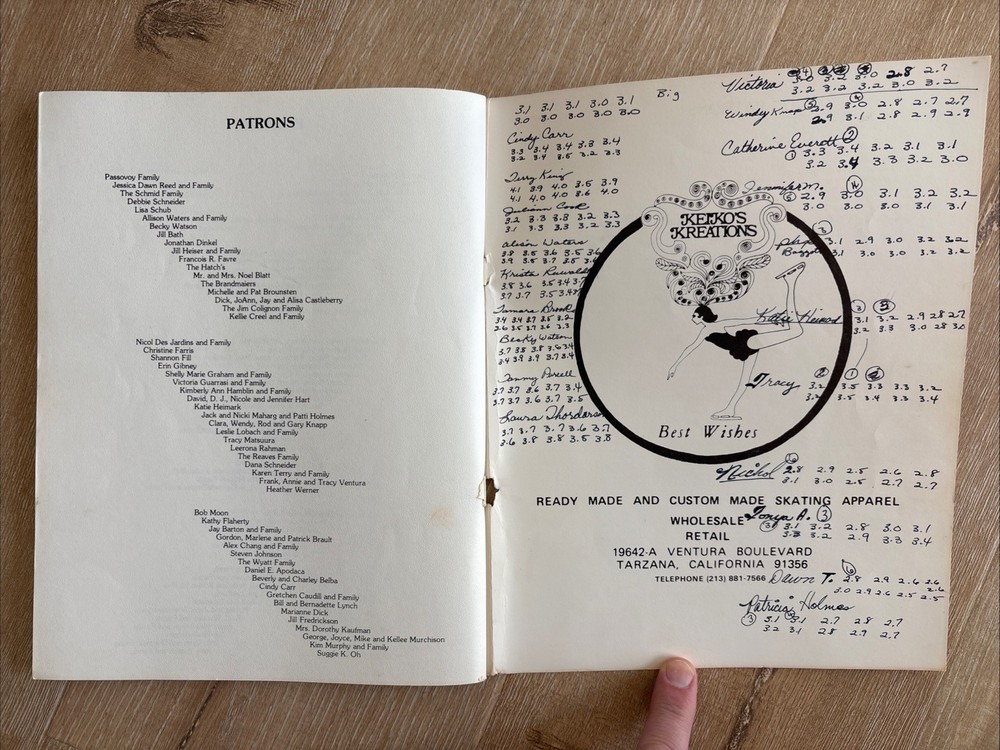 PATRONS
Passovoy Family
Jessica Dawn Reed and Family
The Schmid Family
Debbie Schneider
Lisa Schub
Allison Waters and Family
Becky Watson
Jill Bath
Jonathan Dinkel
Jill Heiser and Family
Francois R. Favre
The Hatch's
Mr. and Mrs. Noel Blatt
The Brandmaiers
Michelle and Pat Brounsten
Dick, JoAnn, Jay and Alisa Castleberry
The Jim Colignon Family
Kellie Creel and Family
Nicol Des Jardins and Family
Christine Farris
Shannon Fill
Erin Gibney
Shelly Marie Graham and Family
Victoria Guarrasi and Family
Kimberly Ann Hamblin and Family
David, D. J., Nicole and Jennifer Hart
Katie Heimark
Jack and Nicki Maharg and Patti Holmes
Clara, Wendy, Rod and Gary Knapp
Leslie Lobach and Family
Tracy Matsuura
Leerona Rahman
The Reaves Family
Dana Schneider
Karen Terry and Family
Frank, Annie and Tracy Ventura
Heather Werner
Bob Moon
Kathy Flaherty
Jay Barton and Family
Gordon, Marlene and Patrick Brault
Alex Chang and Family
Steven Johnson
The Wyatt Family
Daniel E. Apodaca
Beverly and Charley Belba
Cindy Carr
Gretchen Caudill and Family
Bill and Bernadette Lynch
Marianne Dick
Jill Fredrickson
Mrs. Dorothy Kaufman
George, Joyce, Mike and Kellee Murchison
Kim Murphy and Family
Suggie K. Oh
3.1 3.1 3.1 3.0 3.1 Big
3.0 3.0 3.0 3.0 3.0
Cindy Carr
3.3 3.4 3.4 3.3 3.4
3.2 3.4 3.5 3.2 3.3
Terry King
4.1 3.9 4.0 3.5 3.9
4.1 4.0 4.0 3.6 4.0
Juliann Cook
3.2 3.3 3.3 3.2 3.3
3.1 3.3 3.3 3.2 3.3
Alison Waters
3.8 3.5 3.6 3.5 3.6
3.9 3.5 3.7 3.5 3.6
Krista
3.8 3.6 3.5 3.4 3.7
3.7 3.7 3.5 3.4
Tamara Brook
Becky Watson
Tommy
3.7 3.7 3.6 3.7 3.4
3.7 3.7 3.6 3.7 3.5
Laura Thordarson
3.7 3.7 3.7 3.6 3.7
3.6 3.8 3.8 3.5 3.8
Victoria 3.0 2.8 2.7
3.2 3.2 3.2 3.0 3.2
Windy Knapp 2.9 3.0 2.8 2.7 2.7
2.9 3.1 2.8 2.9 2.9
Catherine Everett 2
1 3.3 3.4 3.2 3.1 3.1
3.2 3.4 3.3 3.2 3.0
Jennifer M.
5 2.9 3.0 3.1 3.2 3.2
3.0 3.0 3.0 3.1 3.1
3.1 2.9 3.0 3.2 3.2
3.1 3.0 3.0 3.2 3.2
Katie
3.1 3.2 2.9 2.8 2.7
3.2 3.3 3.0 2.8 3.0
Tracy 3.2 3.5 3.3 3.3 3.2
3.2 3.5 3.4 3.3 3.4
Nichol 2.8 2.9 2.5 2.6 2.8
3.1 3.0 2.5 2.7 2.7
KEIKO'S
KREATIONS
Best Wishes
READY MADE AND CUSTOM MADE SKATING APPAREL
WHOLESALE Tonya A. 3
3 3.1 3.2 2.8 3.0 3.1
RETAIL 3.3 3.2 2.9 3.3 3.4
19642-A VENTURA BOULEVARD
TARZANA, CALIFORNIA 91356
TELEPHONE (213) 881-7566 Dawn T. 2.8 2.9 2.6 2.6
3.0 2.9 2.6 2.5 2.5
Patricia Holmes
3 3.1 3.1 2.7 2.8 2.7
3.2 3.1 2.8 2.9 2.7